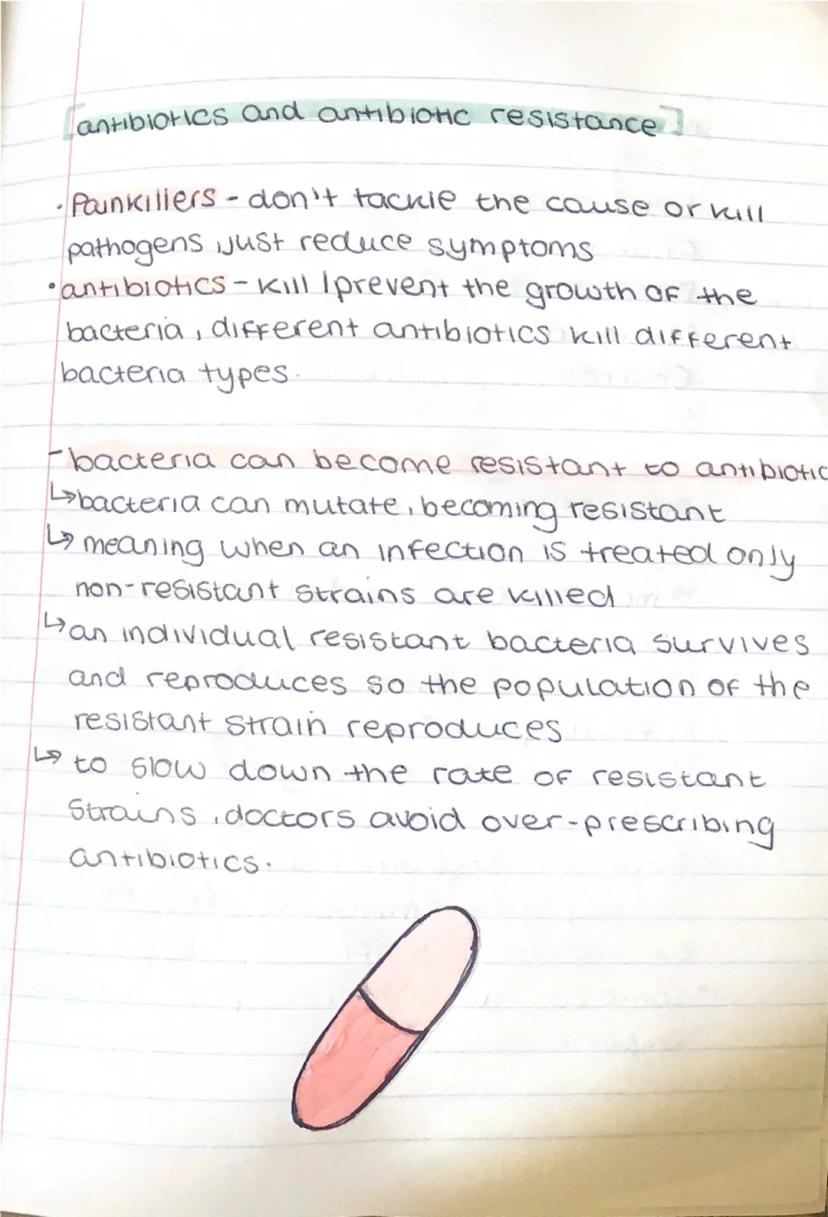 [antibiotics and antibiotic resistance]
· Painkillers - don't tackle the cause or kill
pathogens, just reduce symptoms
• antibiotics - kill / prevent the growth of the
bacteria, different antibiotics kill different
bacteria types.
- bacteria can become resistant to antibiotic
↳ bacteria can mutate, becoming resistant
↳ meaning when an infection is treated only
non-resistant strains are killed
↳ an individual resistant bacteria survives
and reproduces so the population of the
resistant strain reproduces
↳ to slow down the rate of resistant
strains, doctors avoid over-prescribing
antibiotics.